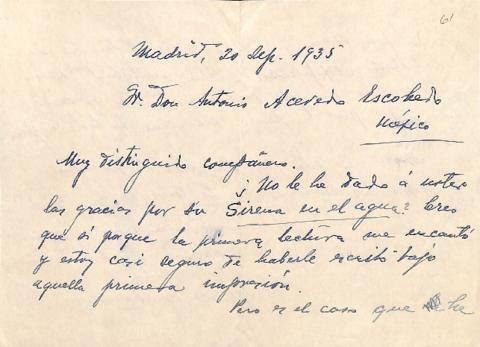 61
Madrid, 20 Sep. 1935
Sr. Don Antonio Acevedo Escobedo
México
Muy distinguido compañero.
¿No le he dado á usted
las gracias por su Sirena en el agua? Creo
que sí porque la primera lectura me encantó
y estoy casi seguro de haberle escrito bajo
aquella primera impresión.
Pero es el caso que he